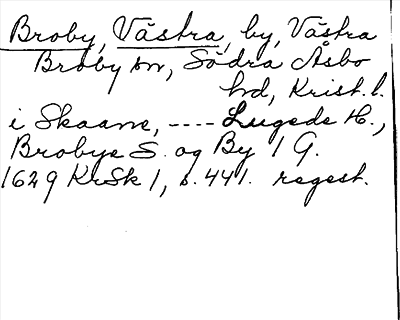 Broby, Västra, by, Västra
Broby sn, Södra Åsbo
hd, Krist. l.
i Skaane, ---- Lugede H.,
Brobye S. og By 1 G.
1629 KrSk 1, s. 441. regest.